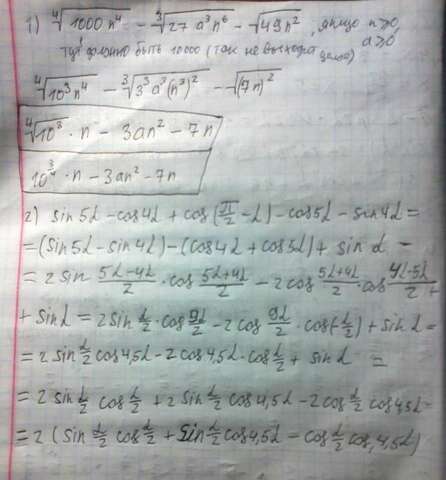 1) ⁴√(1000 n⁴) − ³√(27 a³n⁶) − √(49n²) , якщо n ≥ 0,
a ≥ 0
тут должно быть 10000 (так не выходит целого)
⁴√(10³n⁴) − ³√(3³a³(n²)³) − √((7n)²)
⁴√(10³) · n − 3an² − 7n
10^(3/4) · n − 3an² − 7n
2) sin 5α − cos 4α + cos(π/2 − α) − cos 5α − sin 4α =
= (sin 5α − sin 4α) − (cos 4α + cos 5α) + sin α =
= 2 sin (5α−4α)/2 · cos (5α+4α)/2 − 2 cos (5α+4α)/2 · cos (4α−5α)/2 +
+ sin α = 2 sin α/2 · cos 9α/2 − 2 cos 9α/2 · cos(−α/2) + sin α =
= 2 sin α/2 cos 4,5α − 2 cos 4,5α · cos α/2 + sin α =
= 2 sin α/2 cos α/2 + 2 sin α/2 cos 4,5α − 2 cos α/2 cos 4,5α =
= 2 (sin α/2 cos α/2 + sin α/2 cos 4,5α − cos α/2 cos 4,5α)